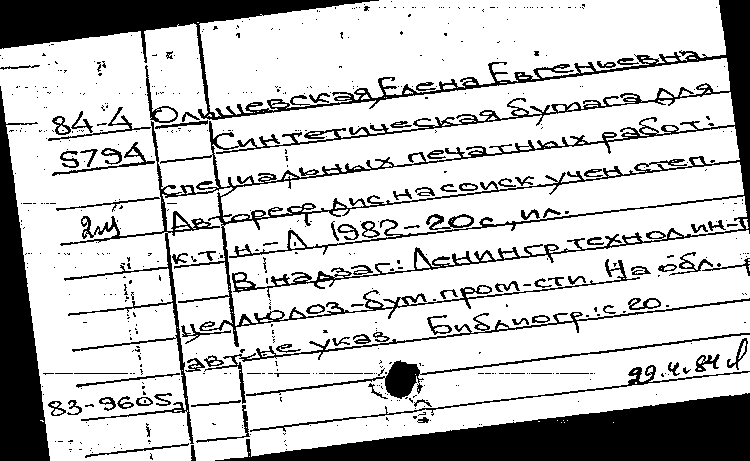 Ольшевская, Елена Евгеньевна.
84-4
Синтетическая бумага для
5794
специальных печатных работ:
Автореф. дис. на соиск. учен. степ.
2ш
к.т.н. - Л., 1982-20с., ил.
В надзаг.: Ленингр. технол. ин-т
целлюлоз.-бум. пром-сти. На обл.
авт. не указ. Библиогр.: с. 20.
29.4.84
83-9605а